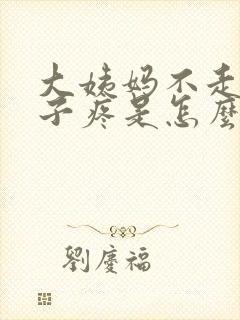 大姨妈不走
子疼是怎麼
劉慶福